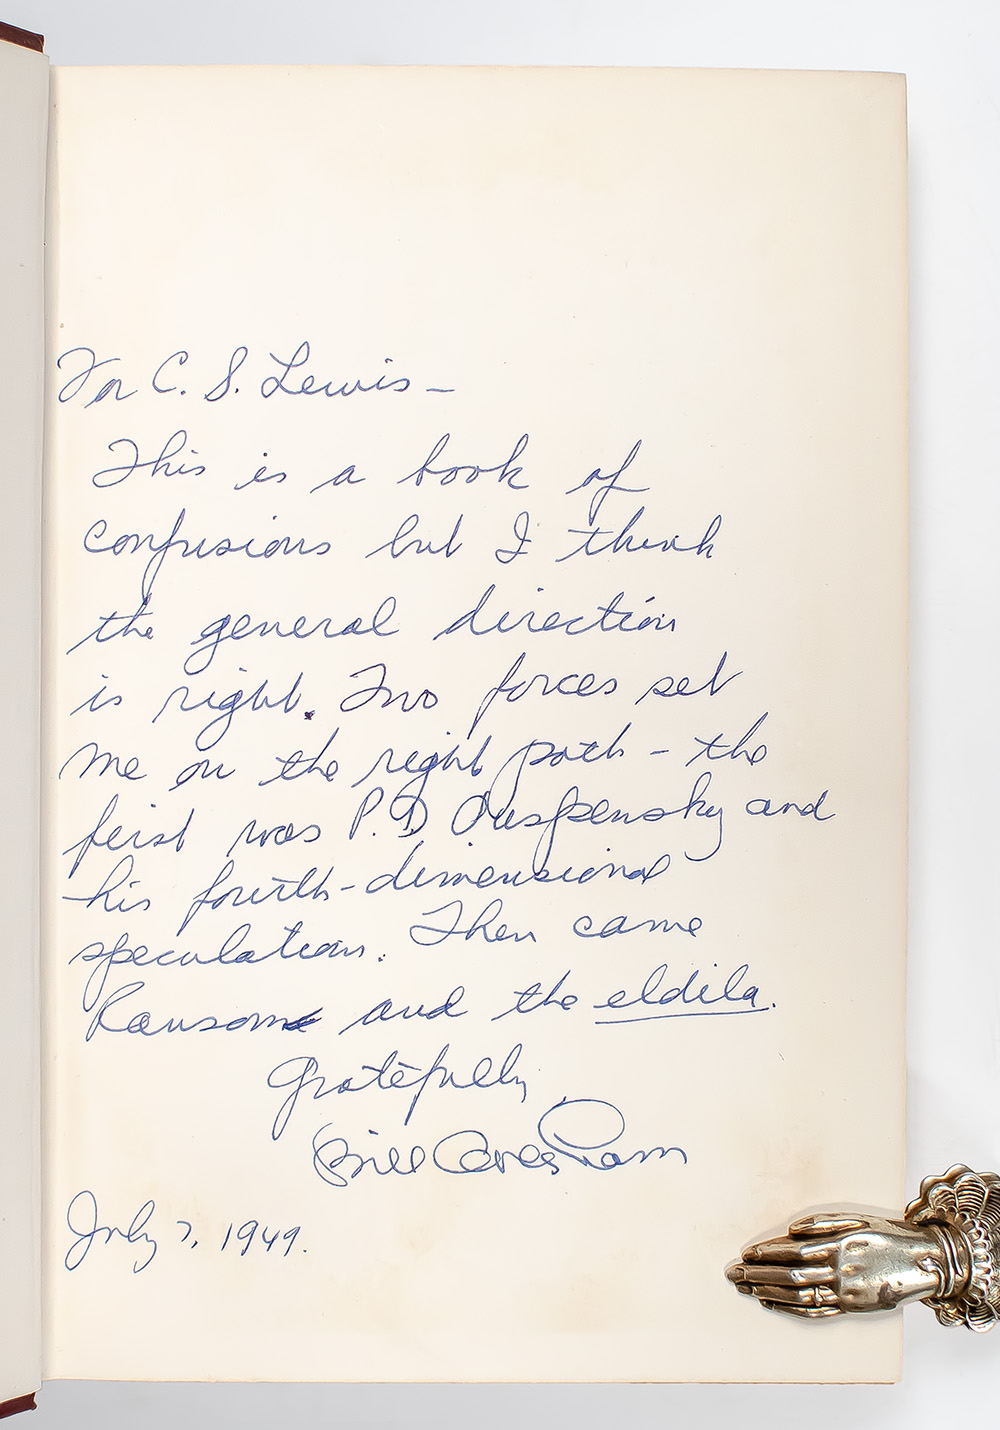 For C. S. Lewis –
This is a book of
confusions but I think
the general direction
is right. Two forces set
me on the right path – the
first was P. D. Ouspensky and
his fourth-dimensional
speculations. Then came
Ransom and the eldila.
Gratefully,
Bill Gresham
July 7, 1949.